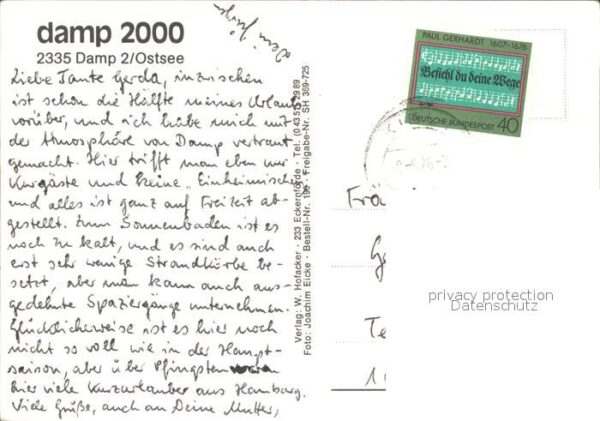 damp 2000
2335 Damp 2/Ostsee
Liebe Tante Gerda, inzwischen
ist schon die Hälfte meines Urlaubs
vorüber, und ich habe mich mit
der Atmosphäre von Damp vertraut
gemacht. Hier trifft man eben nur
Kurgäste und keine „Einheimischen“
und alles ist ganz auf Freizeit ab-
gestellt. Zum Sonnenbaden ist es
noch zu kalt, und es sind auch
erst sehr wenige Strandkörbe be-
setzt, aber man kann auch aus-
gedehnte Spaziergänge unternehmen.
Glücklicherweise ist es hier noch
nicht so voll wie in der Haupt-
saison, aber über Pfingsten waren
hier viele Kurzurlauber aus Hamburg.
Viele Grüße, auch an Deine Mutter,
Dein Jürgen
Verlag: W. Hofacker - 233 Eckernförde - Tel. (04351) 2989
Foto: Joachim Eicke - Bestell-Nr. 199 - Freigabe-Nr. SH 309-725
PAUL GERHARDT 1607-1676
Befiehl du deine Wege
DEUTSCHE BUNDESPOST 40
Frä
G
Te
privacy protection
Datenschutz